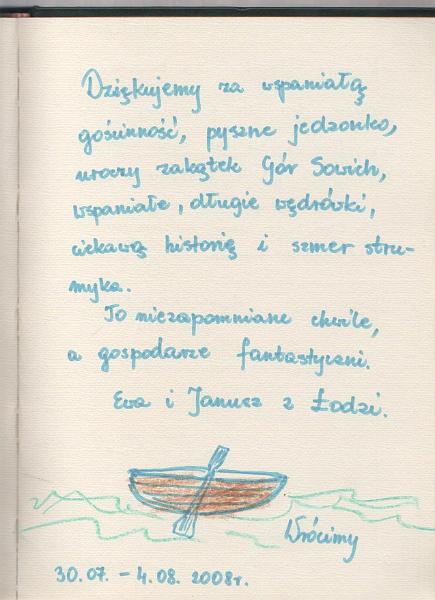 Dziękujemy za wspaniałą
gościnność, pyszne jedzonko,
uroczy zakątek Gór Sowich,
wspaniałe, długie wędrówki,
ciekawą historię i szmer stru-
myka.
To niezapomniane chwile,
a gospodarze fantastyczni.
Ewa i Janusz z Łodzi.
Wrócimy
30.07. - 4.08. 2008r.